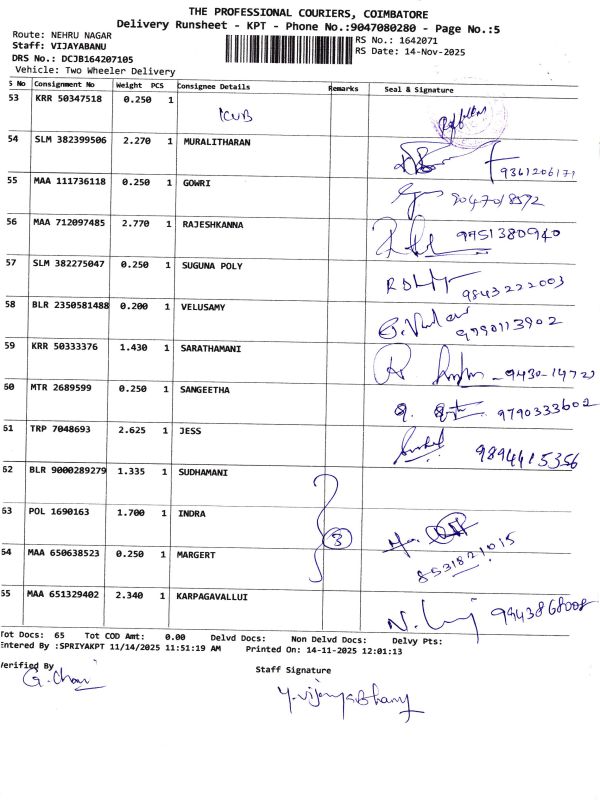 THE PROFESSIONAL COURIERS, COIMBATORE
Delivery Runsheet - KPT - Phone No.:9047080280 - Page No.:5
Route: NEHRU NAGAR RS No.: 1642071
Staff: VIJAYABANU RS Date: 14-Nov-2025
DRS No.: DCJB164207105
Vehicle: Two Wheeler Delivery
S No Consignment No Weight PCS Consignee Details Remarks Seal & Signature
53 KRR 50347518 0.250 1 ICUB
54 SLM 382399506 2.270 1 MURALITHARAN 9361206171
55 MAA 111736118 0.250 1 GOWRI
56 MAA 712097485 2.770 1 RAJESHKANNA 9751380940
57 SLM 382275047 0.250 1 SUGUNA POLY 9843222003
58 BLR 2350581488 0.200 1 VELUSAMY 9790113902
59 KRR 50333376 1.430 1 SARATHAMANI
60 MTR 2689599 0.250 1 SANGEETHA 9790333602
61 TRP 7048693 2.625 1 JESS 9894415356
62 BLR 9000289279 1.335 1 SUDHAMANI
63 POL 1690163 1.700 1 INDRA 3
64 MAA 650638523 0.250 1 MARGERT 8531821015
65 MAA 651329402 2.340 1 KARPAGAVALLUI 9943868008
Tot Docs: 65 Tot COD Amt: 0.00 Delvd Docs: Non Delvd Docs: Delvy Pts:
Entered By :SPRIYAKPT 11/14/2025 11:51:19 AM Printed On: 14-11-2025 12:01:13
Verified By Staff Signature